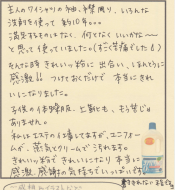 主人のワイシャツの袖、襟周り、いろんな
洗剤を使って約10年。。。
満足するものはなく、何となくいいかな〜
と思って使っていました。(すごく苦痛でした!)
そんな時きれいッ粉に出会い、しみとうに
感激!!つけておくだけで本当にきれ
いになりました。
子供の体操服、上靴も、もう驚い
ありません。
私はエステの仕事してますが、ユニフォー
ムが、蒸気とクリームで汚れます。
きれいッ粉できれいになり本当に
感激、感謝の気持ちでいっぱいです